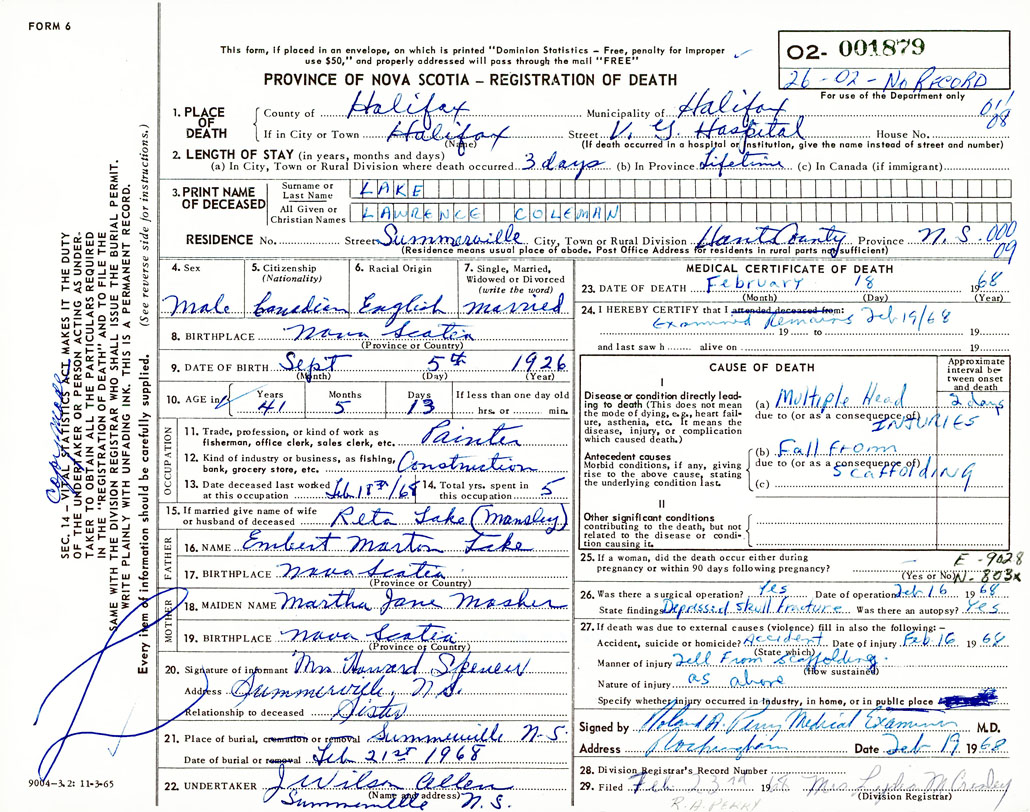 FORM 6
This form, if placed in an envelope, on which is printed "Dominion Statistics – Free, penalty for improper
use $50," and properly addressed will pass through the mail "FREE"
PROVINCE OF NOVA SCOTIA – REGISTRATION OF DEATH
02- 001879
26-02- No RECORD
For use of the Department only
1. PLACE OF DEATH
County of Halifax Municipality of Halifax
If in City or Town Halifax Street V. G. Hospital House No.
(Name) (If death occurred in a hospital or institution, give the name instead of street and number)
2. LENGTH OF STAY (in years, months and days)
(a) In City, Town or Rural Division where death occurred 3 days (b) In Province Lifetime (c) In Canada (if immigrant)
3. PRINT NAME OF DECEASED
Surname or Last Name LAKE
All Given or Christian Names LAWRENCE COLEMAN
RESIDENCE No. Street Summerville City, Town or Rural Division Hants County Province N.S. 000
09
(Residence means usual place of abode. Post Office Address for residents in rural parts not sufficient)
4. Sex Male
5. Citizenship (Nationality) Canadian
6. Racial Origin English
7. Single, Married, Widowed or Divorced (write the word) married
8. BIRTHPLACE Nova Scotia
(Province or Country)
9. DATE OF BIRTH Sept 5th 1926
(Month) (Day) (Year)
10. AGE in Years 41 Months 5 Days 13 If less than one day old hrs. or min.
OCCUPATION
11. Trade, profession, or kind of work as fisherman, office clerk, sales clerk, etc. Painter
12. Kind of industry or business, as fishing, bank, grocery store, etc. Construction
13. Date deceased last worked at this occupation Feb 18th/68 14. Total yrs. spent in this occupation 5
15. If married give name of wife or husband of deceased Reta Lake (Mansley)
FATHER
16. NAME Embert Marton Lake
17. BIRTHPLACE Nova Scotia
(Province or Country)
MOTHER
18. MAIDEN NAME Martha Jane Mosher
19. BIRTHPLACE Nova Scotia
(Province or Country)
20. Signature of informant Mrs Howard Spencer
Address Summerville, N.S.
Relationship to deceased Sister
21. Place of burial, cremation or removal Summerville N.S.
Date of burial or removal Feb 21st 1968
22. UNDERTAKER J Wilson Allen
(Name and address)
Summerville N.S.
MEDICAL CERTIFICATE OF DEATH
23. DATE OF DEATH February 18 1968
(Month) (Day) (Year)
24. I HEREBY CERTIFY that I attended deceased from:
Examined Remains Feb 19/68
19 to 19
and last saw h alive on 19
CAUSE OF DEATH
Approximate interval between onset and death
I
Disease or condition directly leading to death (This does not mean the mode of dying, e.g., heart failure, asthenia, etc. It means the disease, injury, or complication which caused death.)
(a) Multiple Head 2 days
due to (or as a consequence of) INJURIES
Antecedent causes
Morbid conditions, if any, giving rise to the above cause, stating the underlying condition last.
(b) Fall from
due to (or as a consequence of) Scaffolding
(c)
II
Other significant conditions
contributing to the death, but not related to the disease or condition causing it.
25. If a woman, did the death occur either during pregnancy or within 90 days following pregnancy?
(Yes or No)
E-9028
N-803x
26. Was there a surgical operation? Yes Date of operation Feb 16 1968
State findings Depressed skull fracture Was there an autopsy? Yes
27. If death was due to external causes (violence) fill in also the following:–
Accident, suicide or homicide? Accident Date of injury Feb 16 1968
(State which)
Manner of injury Fell From Scaffolding
(How sustained)
Nature of injury as above
Specify whether injury occurred in industry, in home, or in public place
Signed by Roland A. Perry Medical Examiner M.D.
Address Rockingham Date Feb 19 1968
28. Division Registrar's Record Number
29. Filed Feb 23rd 1968 Mrs Lydia McCresley
(Division Registrar)
R.A. PERRY
SEC. 14 – VITAL STATISTICS ACT, MAKES IT THE DUTY
OF THE UNDERTAKER OR PERSON ACTING AS UNDER-
TAKER TO OBTAIN ALL THE PARTICULARS REQUIRED
IN THE "REGISTRATION OF DEATH" AND TO FILE THE
SAME WITH THE DIVISION REGISTRAR WHO SHALL ISSUE THE BURIAL PERMIT.
WRITE PLAINLY WITH UNFADING INK. THIS IS A PERMANENT RECORD.
Every item of information should be carefully supplied. (See reverse side for instructions.)
9004-3.2: 11-3-65